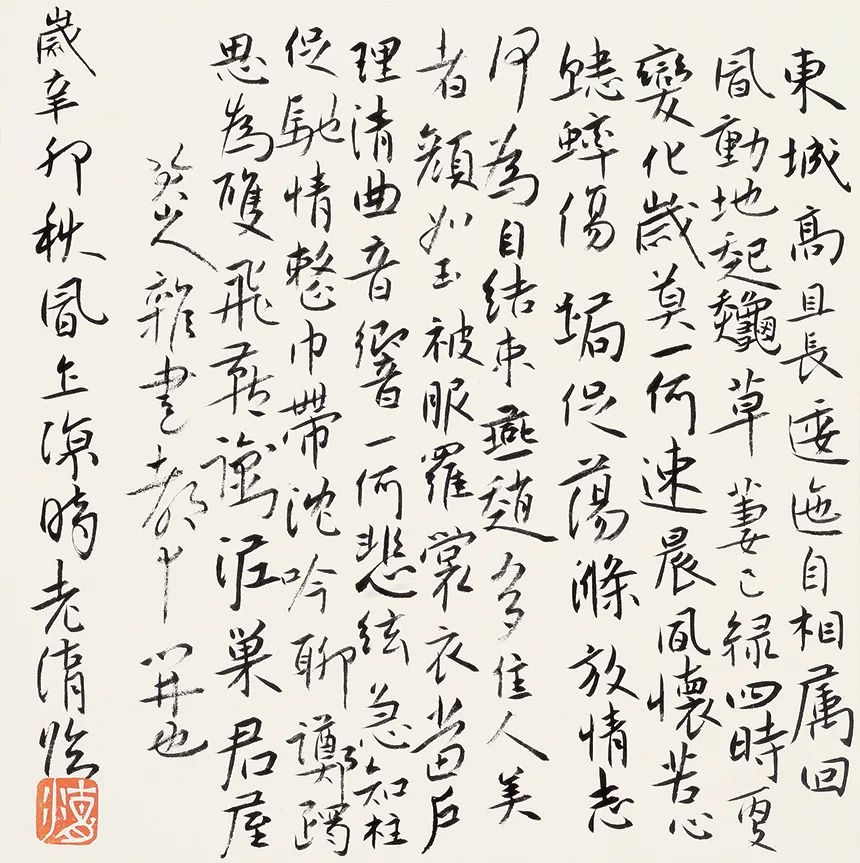 東城高且長逶迤自相属回
風動地起龝草萋已緑四時更
變化歲莫一何速晨風懷苦心
蟋蟀傷跼促蕩滌放情志
何為自結束燕趙多佳人美
者顏如玉被服羅裳衣當戶
理清曲音響一何悲絃急知柱
促馳情整巾帶沈吟聊躑躅
思為雙飛燕銜泥巢君屋
雜書十開也
歲辛卯秋風上涼時老清臨